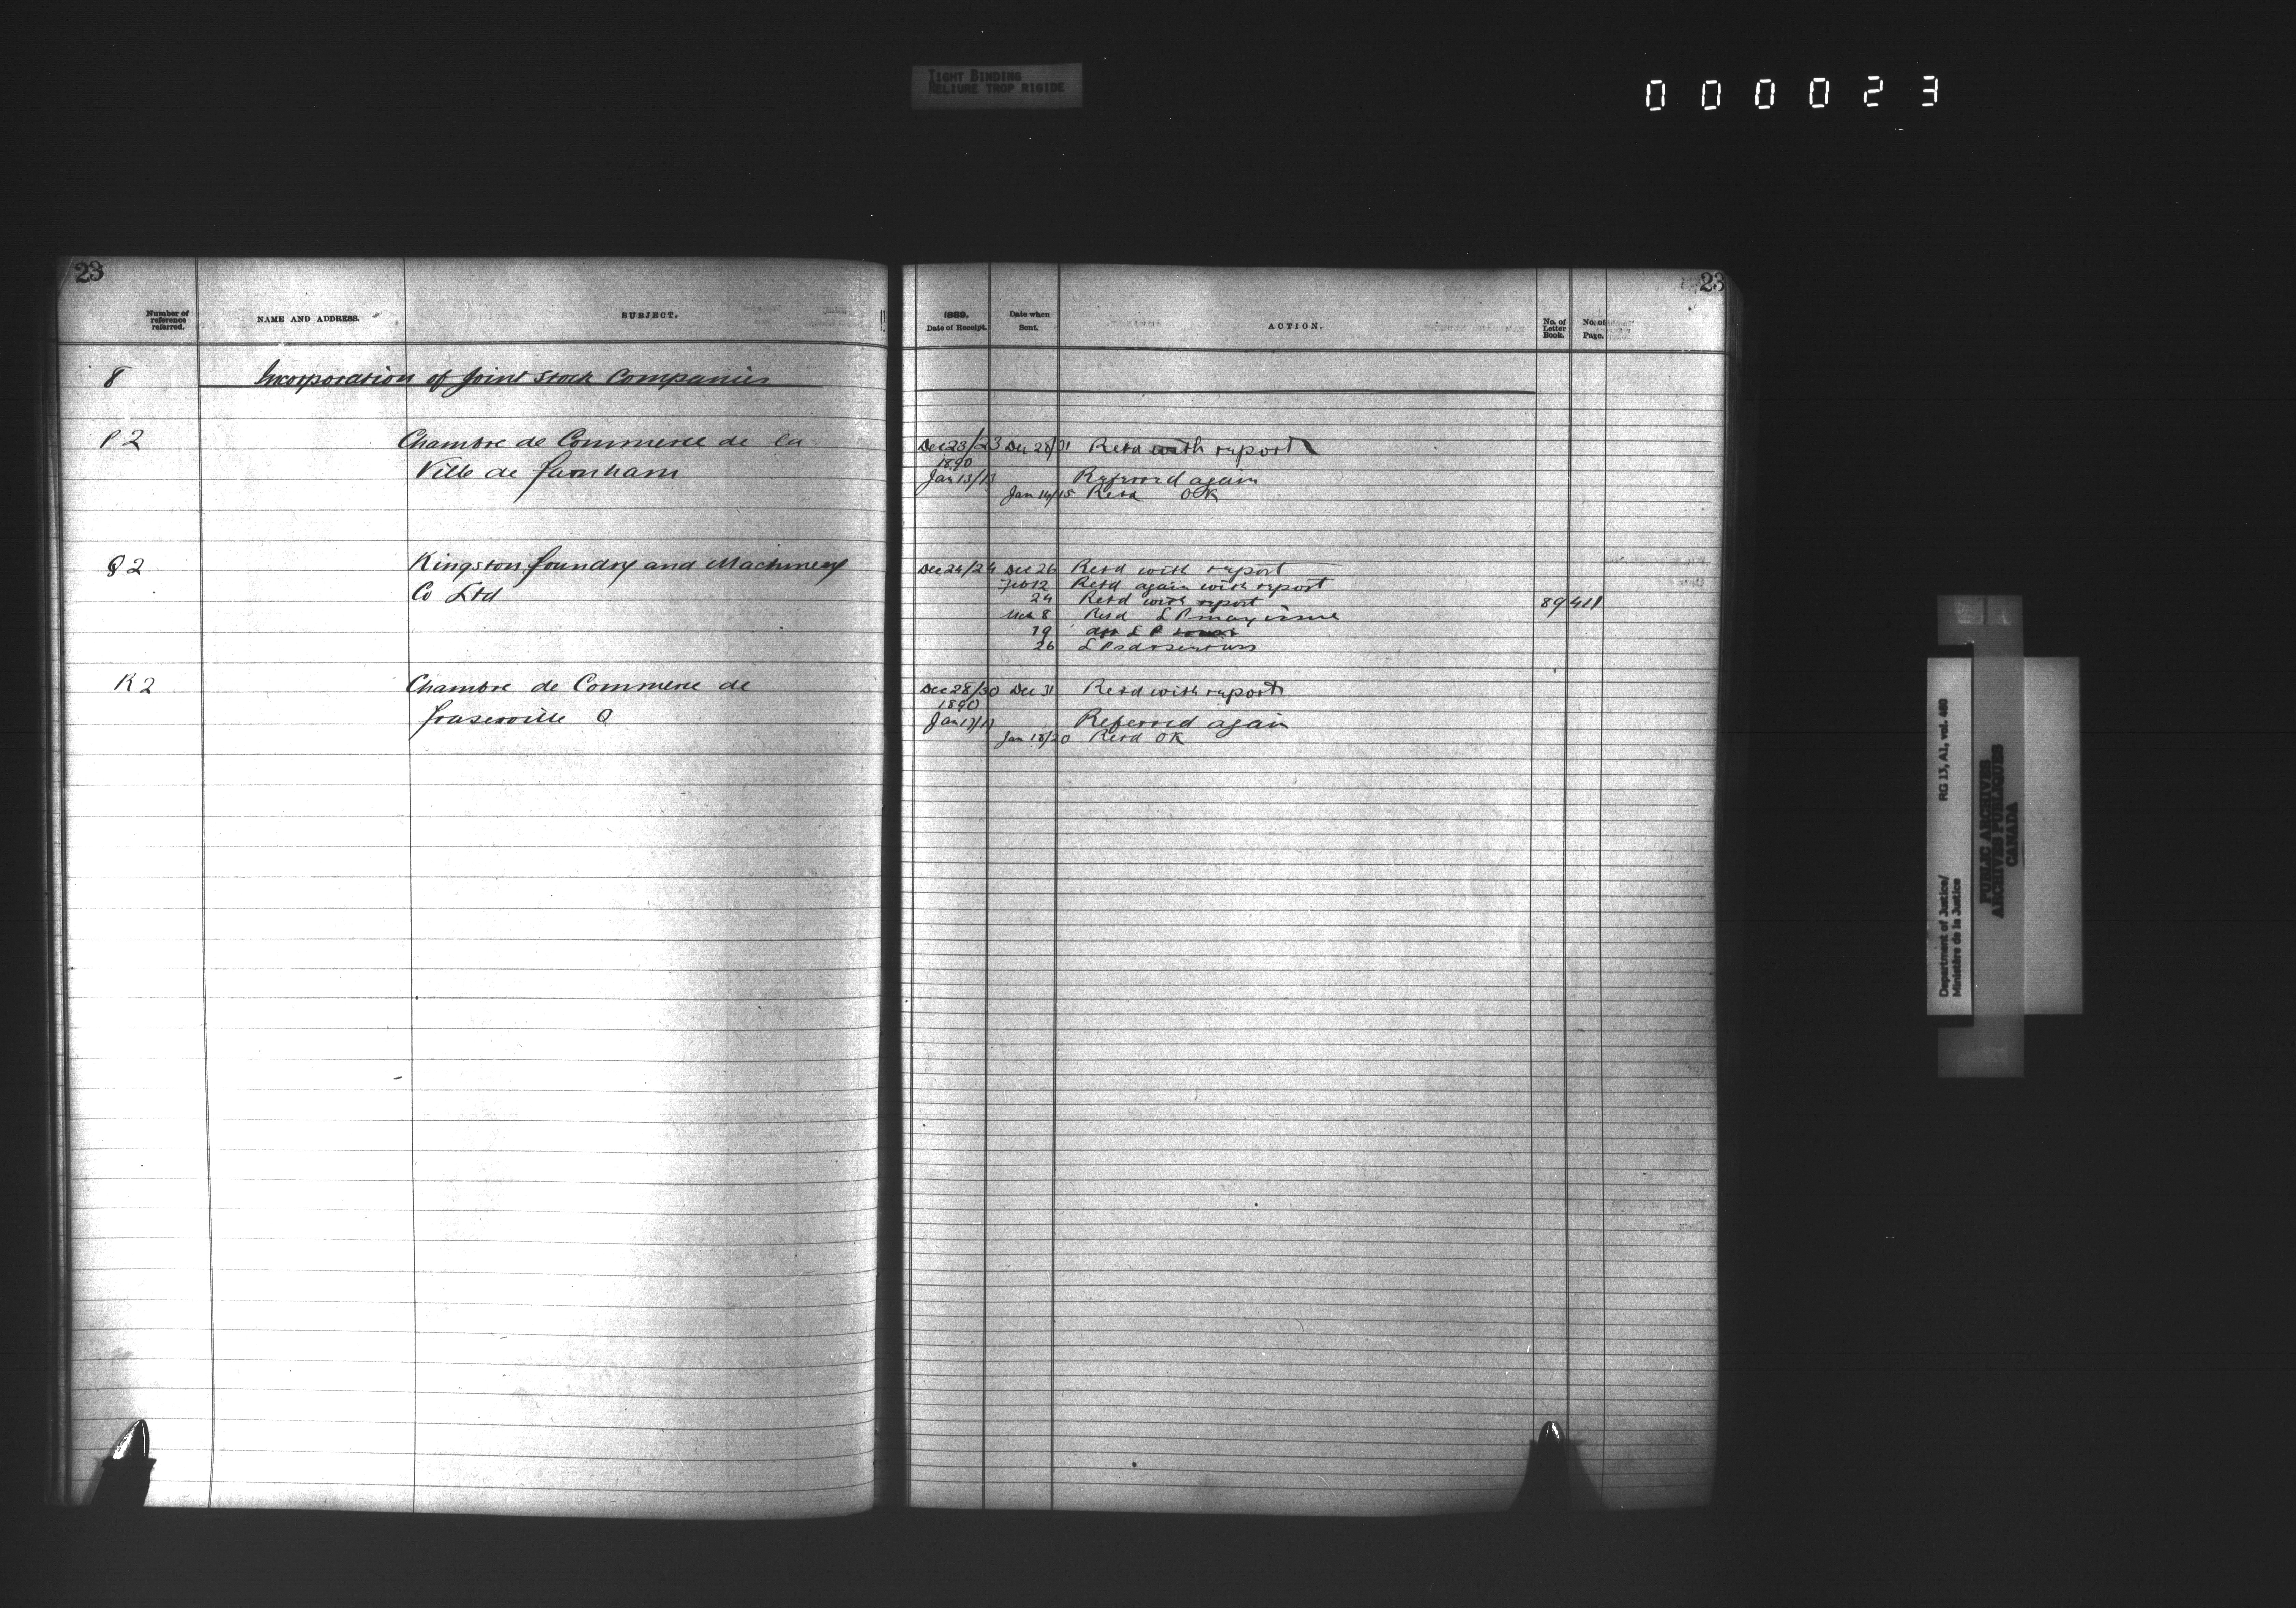 TIGHT BINDING
RELIURE TROP RIGIDE
000023
23
Number of reference referred.
NAME AND ADDRESS.
SUBJECT.
8 Incorporation of Joint Stock Companies
P2 Chambre de Commerce de la
Ville de Farnham
Q2 Kingston Foundry and Machinery
Co Ltd
R2 Chambre de Commerce de
Fraserville Q
23
1889.
Date of Receipt.
Date when Sent.
ACTION.
No. of Letter Book.
No. of Page.
Dec 23/23 Dec 28/31 Retd with report
1890
Jan 13/13 Referred again
Jan 14/15 Retd OK
Dec 24/24 Dec 26 Retd with report
Feb 12 Retd again with report
24 Retd with report 89 411
Mch 8 Retd L P may issue
19 L P
26 L P
Dec 28/30 Dec 31 Retd with report
1890
Jan 17/17 Referred again
Jan 18/20 Retd OK
Department of Justice/ RG 13, A1, vol. 480
Ministère de la Justice
PUBLIC ARCHIVES
ARCHIVES PUBLIQUES
CANADA